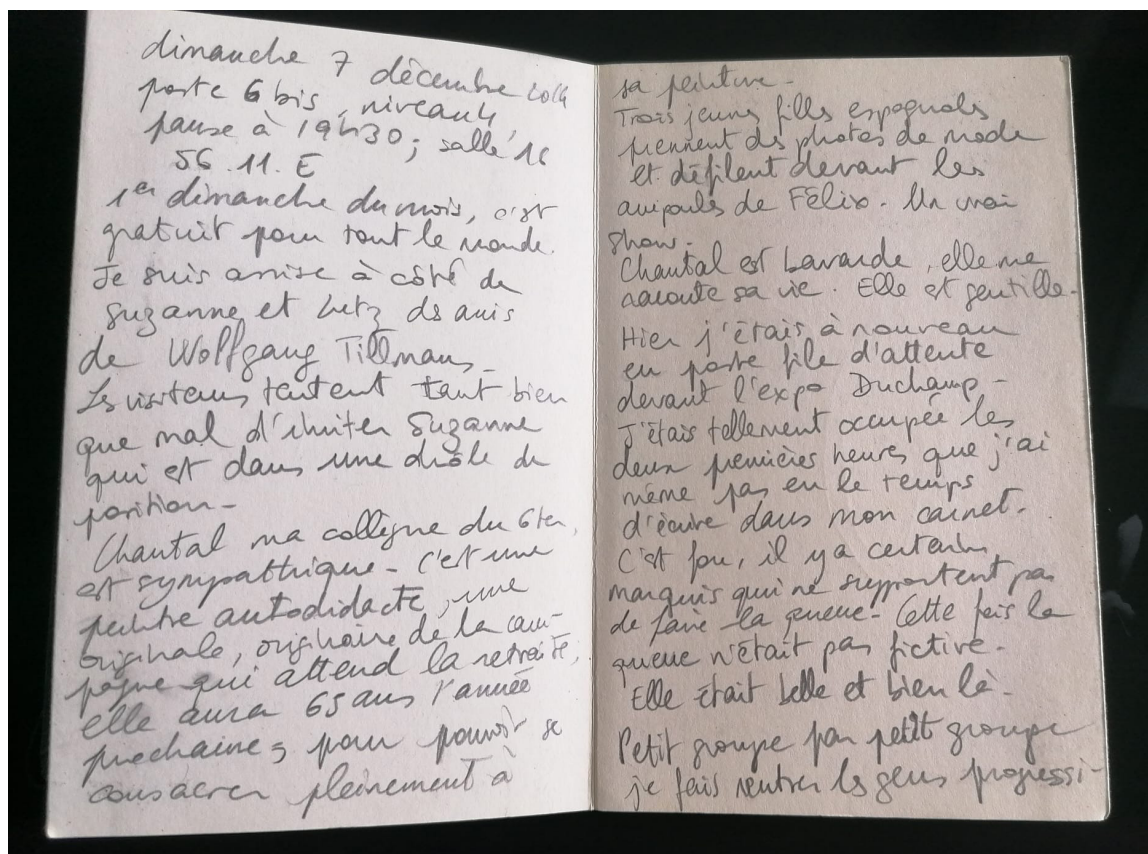 dimanche 7 décembre 2014
poste 6 bis, niveau 4,
pause à 19h30 ; salle 16
56.11.E
1er dimanche du mois, c'est
gratuit pour tout le monde.
Je suis assise à côté de
Suzanne et Lutz ds amis
de Wolfgang Tillmans.
Les visiteurs tentent tant bien
que mal d'imiter Suzanne
qui est dans une drôle de
position -
Chantal ma collègue du 6ter,
est sympathique - c'est une
peintre autodidacte, une
originale, originaire de la cam-
pagne qui attend la retraite,
elle aura 65 ans l'année
prochaine, pour pouvoir se
consacrer pleinement à
sa peinture -
Trois jeunes filles espagnols
prennent des photos de mode
et défilent devant les
ampoules de Félix. Un vrai
show.
Chantal est bavarde, elle me
raconte sa vie. Elle est gentille.
Hier j'étais à nouveau
en poste file d'attente
devant l'expo Duchamp -
J'étais tellement occupée les
deux premières heures que j'ai
même pas eu le temps
d'écrire dans mon carnet.
C'est fou, il y a certains
marquis qui ne supportent pas
de faire la queue - Cette fois la
queue n'était pas fictive.
Elle était belle et bien là -
Petit groupe par petit groupe
je fais rentrer les gens progressi-